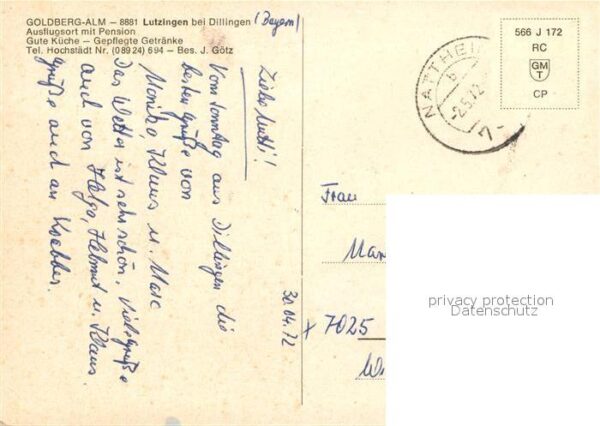 GOLDBERG-ALM – 8881 Lutzingen bei Dillingen (Bayern)
Ausflugsort mit Pension
Gute Küche – Gepflegte Getränke
Tel. Hochstädt Nr. (08924) 694 – Bes. J. Götz
566 J 172
RC
GM
T
CP
NATTHEI
b
-2.5.72
7
Liebe Mutti!
Vom Sonntag aus Dillingen die
besten Grüße von
Monika Klaus u. Marc
Das Wetter ist sehr schön, viele Grüße
auch von Helga, Helmut u. Klaus.
Grüße auch an
30.04.72
Frau
+ 7025
privacy protection
Datenschutz